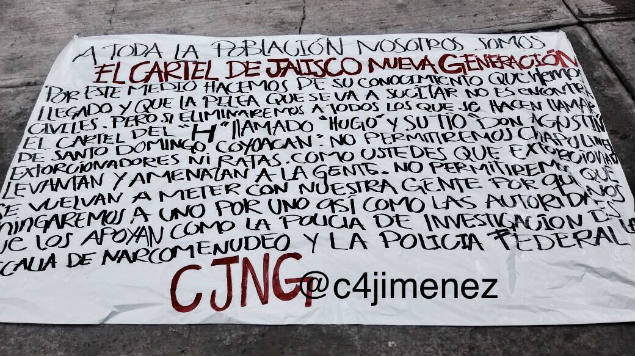 A TODA LA POBLACIÓN NOSOTROS SOMOS
EL CARTEL DE JALISCO NUEVA GENERACIÓN
POR ESTE MEDIO HACEMOS DE SU CONOCIMIENTO QUE HEMOS
LLEGADO Y QUE LA PELEA QUE SE VA A SUCITAR NO ES ENCONTRA
CIVILES. PERO SI ELIMINAREMOS A TODOS LOS QUE SE HACEN LLAMAR
EL CARTEL DEL "H" LLAMADO "HUGO" Y SU TIO "DON AGUSTIN
DE SANTO DOMINGO COYOACAN. NO PERMITIREMOS CHAPULINES
EXTORCIONADORES NI RATAS. COMO USTEDES QUE EXTORCIONAN
LEVANTAN Y AMENAZAN A LA GENTE. NO PERMITIREMOS QUE
SE VUELVAN A METER CON NUESTRA GENTE POR QUE NOS
CHINGAREMOS A UNO POR UNO ASI COMO LAS AUTORIDADES
QUE LOS APOYAN COMO LA POLICIA DE INVESTIGACION DE
FISCALIA DE NARCOMENUDEO Y LA POLICIA FEDERAL
CJNG
@c4jimenez